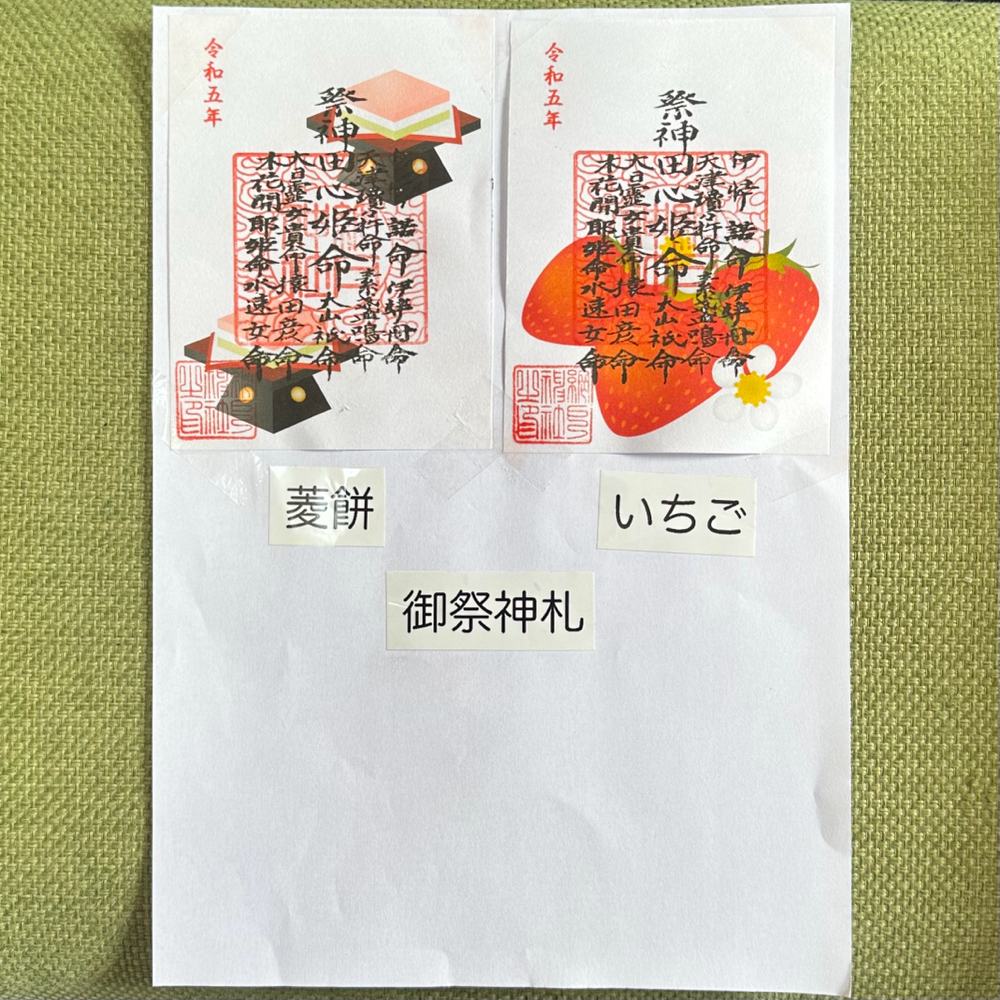 令和五年
祭神
諾命 伊弉冉命
天津瓊々杵命 素盞嗚命
田心姫命 大山祇命
大日孁女貴命 猿田彦命
木花開耶姫命 水速女命
菱餅
令和五年
祭神
伊弉諾命 伊弉冉命
天津瓊々杵命 素盞嗚命
田心姫命 大山祇命
大日孁女貴命 猿田彦命
木花開耶姫命 水速女命
いちご
御祭神札